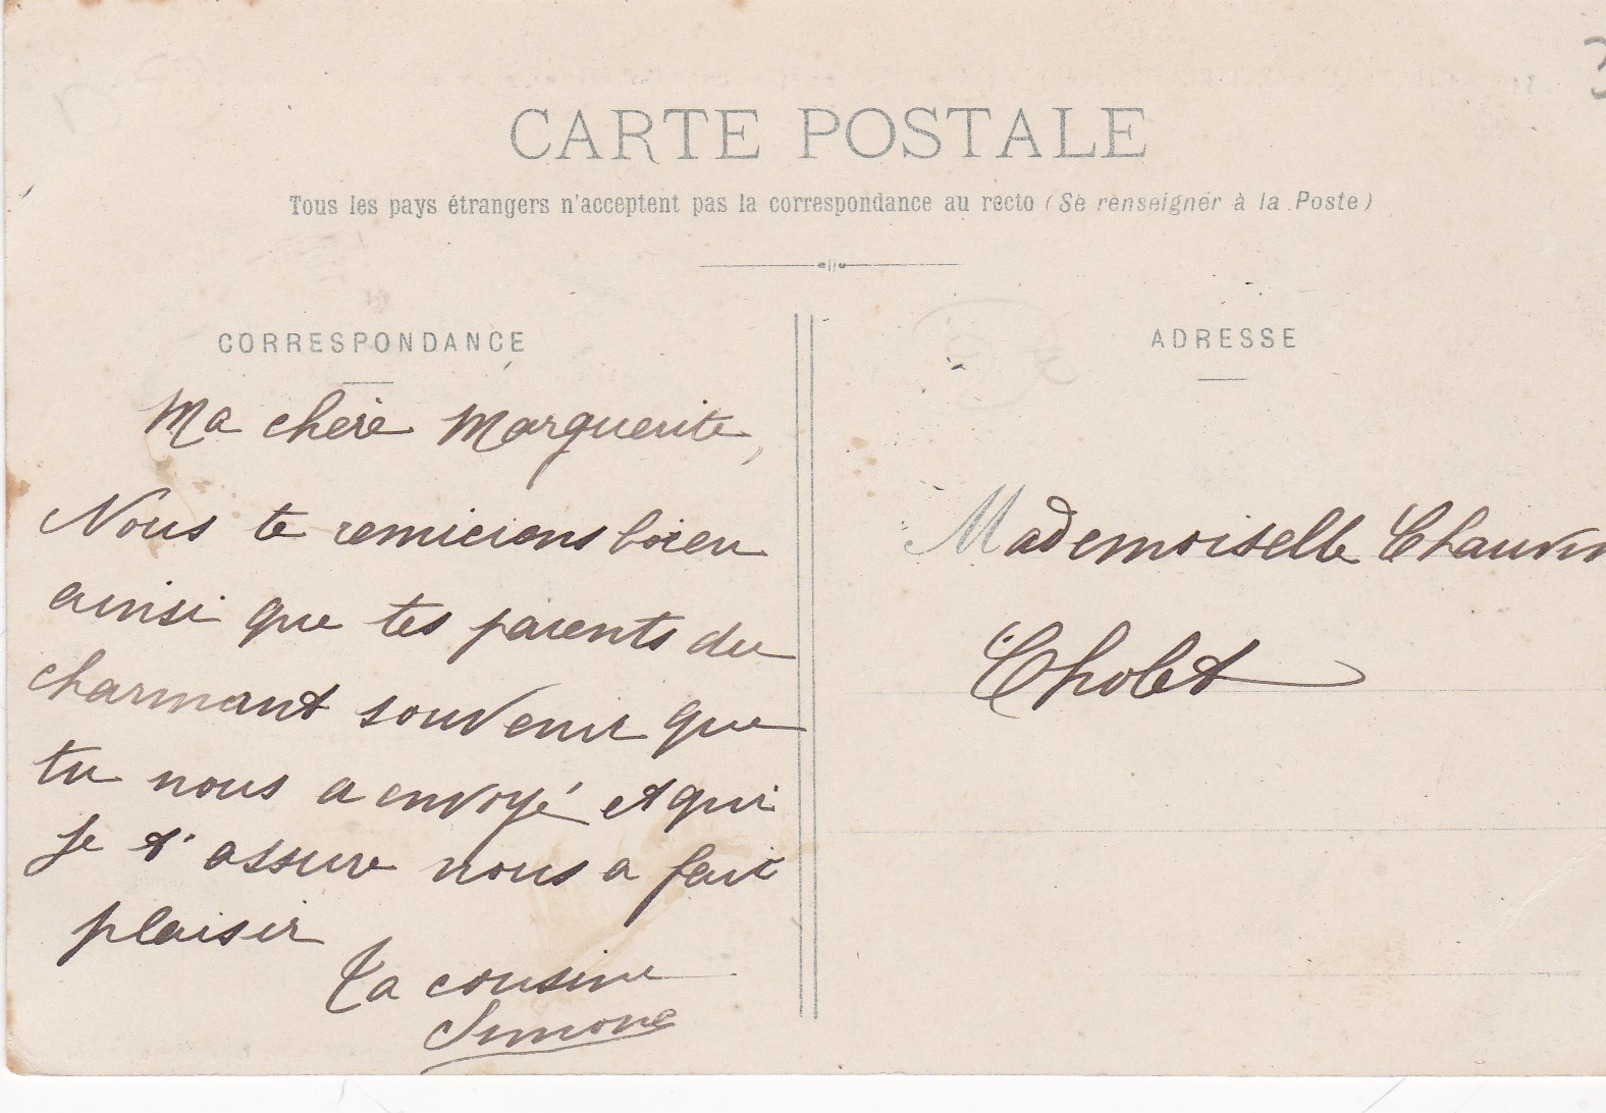 CARTE POSTALE
Tous les pays étrangers n'acceptent pas la correspondance au recto (Se renseigner à la Poste)
CORRESPONDANCE
Ma chère Marguerite,
Nous te remicions bien
ainsi que tes parents du
charmant souvenir que
tu nous a envoyé et qui
je t'assure nous a fait
plaisir
Ta cousine
Simone
ADRESSE
Mademoiselle Chauvin
Cholet